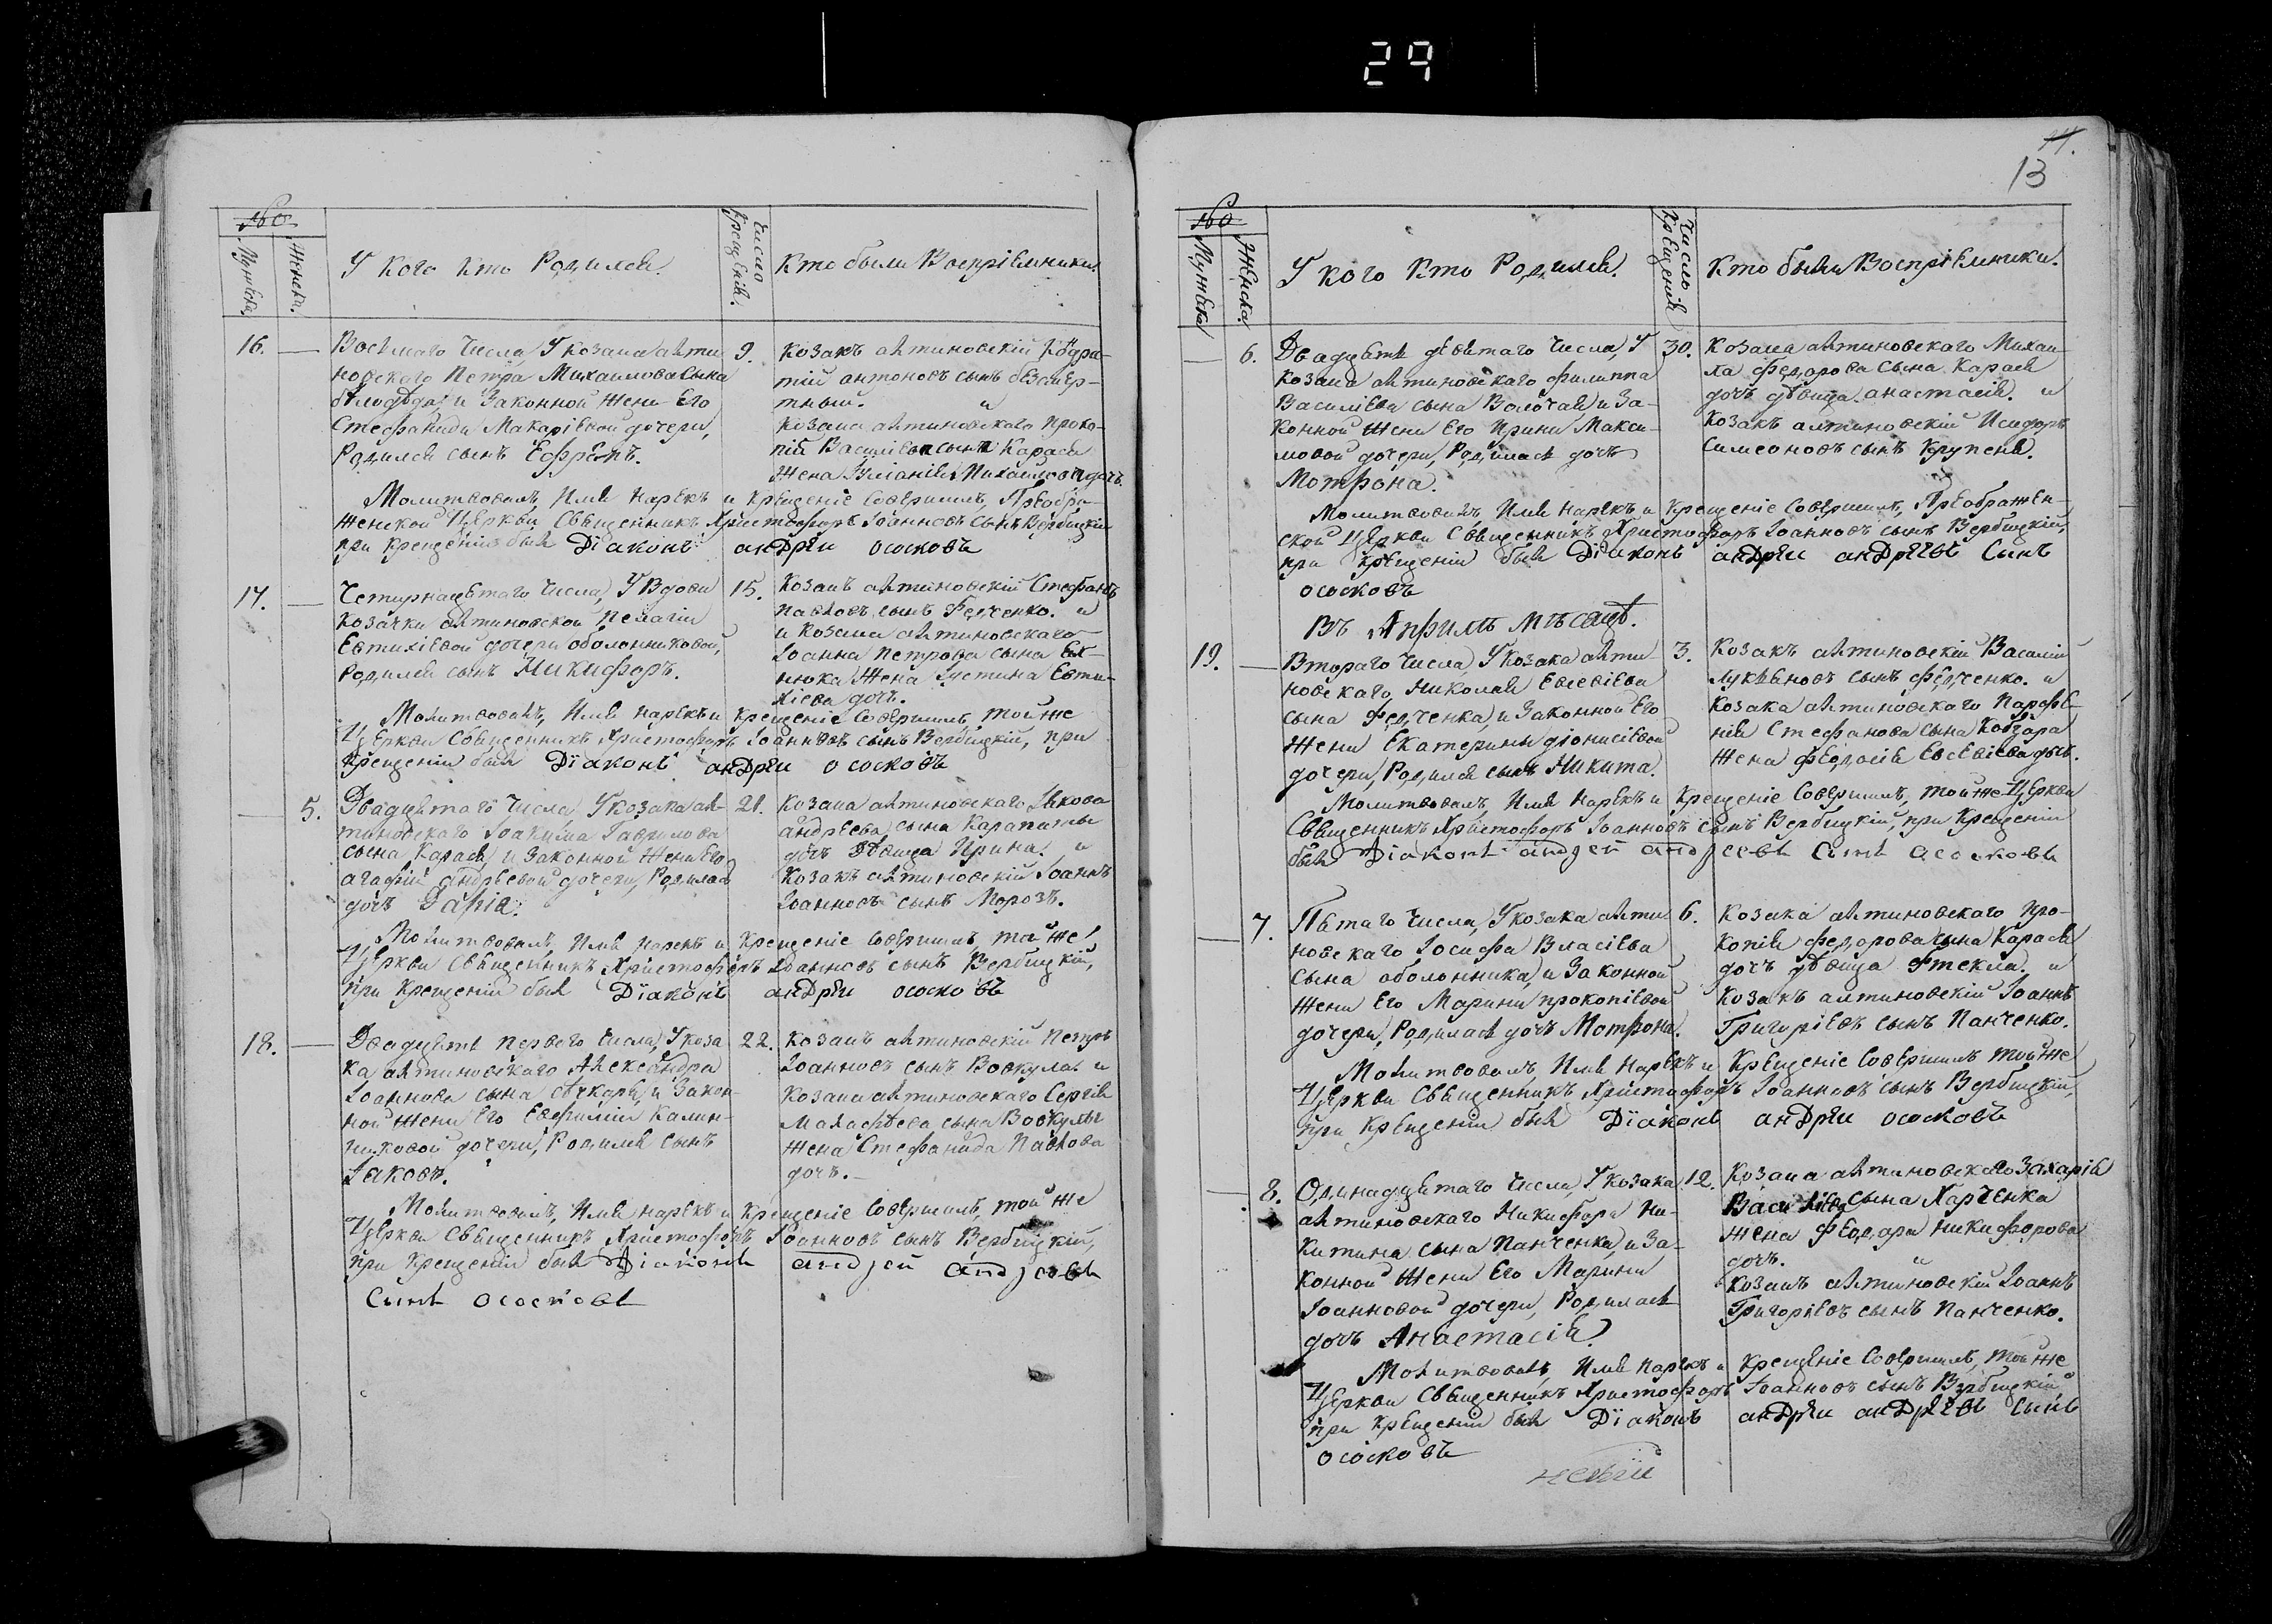 29
11.
13
№
Мужеска.
Женска.
У кого кто Родился.
Число Крещенія.
Кто были Воспріемники.
16.
Восмаго Числа, У козака алти-
новского Петра Михаилова сына
бѣлодѣда, и Законной Жени Его
Стефаниди Макаріевой дочери,
Родился сынъ Ефремъ.
9.
Козакъ алтиновскій Кодра-
тій антоновъ сынъ безсмер-
тный. и
Козака алтиновскаго Проко-
пія Василіева сына Карася
Жена Михайлова дочъ.
Молитвовалъ, Имя нарекъ и крещеніе Совершилъ, Преобра-
женской Церкви Священникъ Христофоръ Іоанновъ сынъ Вербицкій
при крещеніи былъ Діаконъ андрей ососковъ
17.
Четирнадцятаго Числа, У Вдови
козачки алтиновской Пелагіи
Евтихіевой дочери оболонниковой,
Родился сынъ Никифоръ.
15.
Козакъ алтиновскій Стефанъ
Павловъ сынъ Федченко. и
и Козака алтиновскаго
Іоанна Петрова сына
Жена Іустина Евти-
хіева дочъ.
Молитвовалъ, Имя нарекъ и крещеніе Совершилъ, тойже
Церкви Священникъ Христофоръ Іоанновъ сынъ Вербицкій, при
крещеніи былъ Діаконъ андрей ососковъ
5.
Двадцятаго Числа, У козака ал-
тиновского Іоакима Гаврилова
сына Карася, и Законной Жени Его
агафіи андреевой дочери, Родилась
дочъ Дарія.
21.
Козака алтиновскаго Іякова
андреева сына Карапиты
дочъ дѣвица Ирина. и
Козакъ алтиновскій Іоаннъ
Іоанновъ сынъ Морозъ.
Молитвовалъ, Имя нарекъ и крещеніе Совершилъ, тойже
Церкви Священникъ Христофоръ Іоанновъ сынъ Вербицкій,
при крещеніи былъ Діаконъ андрей ососковъ
18.
Двадцять перваго Числа, У коза-
ка алтиновскаго Александра
Іоаннова сына и Закон-
ной Жени Его Евфиміи Калин-
никовой дочери, Родился сынъ
Іаковъ.
22.
Козакъ алтиновскій Петръ
Іоанновъ сынъ Вовкула. и
Козака алтиновскаго Сергія
Малафѣева сына Вовкулы
Жена Стефанида Павлова
дочъ.
Молитвовалъ, Имя нарекъ и крещеніе Совершилъ, тойже
Церкви Священникъ Христофоръ Іоанновъ сынъ Вербицкій,
при крещеніи былъ Діаконъ андрей андреевъ
сынъ ососковъ
№
Мужеска
Женска.
У кого кто Родился.
Число Крещенія
Кто были Воспріемники.
6.
Двадцять девятаго Числа, У
козака алтиновскаго Филиппа
Василіева сына Волочая, и За-
конной Жени Его Ирини Макси-
мовой дочери, Родилась дочъ
Мотрона.
30.
Козака алтиновскаго Михаи-
ла Федорова сына Карася
дочъ дѣвица анастасія. и
Козакъ алтиновскій Исидоръ
Симеоновъ сынъ Крупеня.
Молитвовалъ, Имя нарекъ и крещеніе Совершилъ, Преображен-
ской Церкви Священникъ Христофоръ Іоанновъ сынъ Вербицкій,
при крещеніи былъ Діаконъ андрей андреевъ сынъ
ососковъ
Въ Априлѣ мѣсяцѣ.
19.
Втораго Числа, У козака алти-
новскаго Николая Евсевіева
сына Федченка, и Законной Его
Жени Екатерины діонисіевой
дочери, Родился сынъ Никита.
3.
Козакъ алтиновскій Василій
Лукіяновъ сынъ Федченко. и
Козака алтиновскаго Парфе-
нія Стефанова сына Кобзара
Жена Феодосія Евсевіева дочъ.
Молитвовалъ, Имя нарекъ и крещеніе Совершилъ, тойже Церкви
Священникъ Христофоръ Іоанновъ сынъ Вербицкій, при крещеніи
былъ Діаконъ андрей андреевъ сынъ ососковъ
7.
Пятаго Числа, У козака алти-
новскаго Іосифа Власіева
сына оболонника, и Законной
Жени Его Марини Прокопіевой
дочери, Родилась дочъ Мотрона.
6.
Козака алтиновскаго Про-
копія Федорова сына Карася
дочъ дѣвица Фтекла. и
Козакъ алтиновскій Іоаннъ
Григоріевъ сынъ Панченко.
Молитвовалъ, Имя нарекъ и крещеніе Совершилъ тойже
Церкви Священникъ Христофоръ Іоанновъ сынъ Вербицкій,
при крещеніи былъ Діаконъ андрей ососковъ
8.
Одинадцятаго Числа, У козака
алтиновскаго Никифора Ни-
китина сына Панченка, и За-
конной Жени Его Марини
Іоанновой дочери, Родилась
дочъ Анастасія.
12.
Козака алтиновскаго Захарія
Василіева сына Харченка
Жена Феодора Никифорова
дочъ. и
Козакъ алтиновскій Іоаннъ
Григоріевъ сынъ Панченко.
Молитвовалъ, Имя нарекъ и крещеніе Совершилъ, тойже
Церкви Священникъ Христофоръ Іоанновъ сынъ Вербицкій
при крещеніи былъ Діаконъ андрей андреевъ сынъ
ососковъ